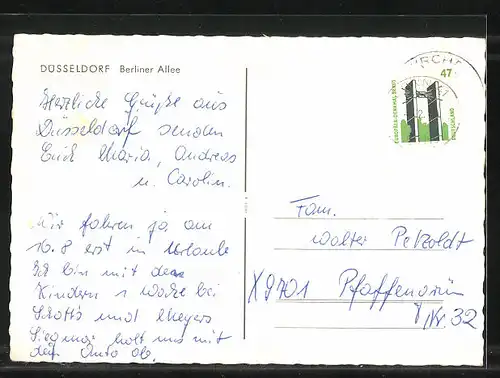 DÜSSELDORF Berliner Allee
Herzliche Grüße aus
Düsseldorf senden
Euch Maria, Andreas
u. Carolin.
Wir fahren ja am
10.8 erst in Urlaub
Ich bin mit den
Kindern 1 Woche bei
und Meyers
holt uns mit
dem Auto ab.
47
DEUTSCHLAND
Fam.
Walter Petzoldt
X9701 Pfaffengrün
Nr. 32